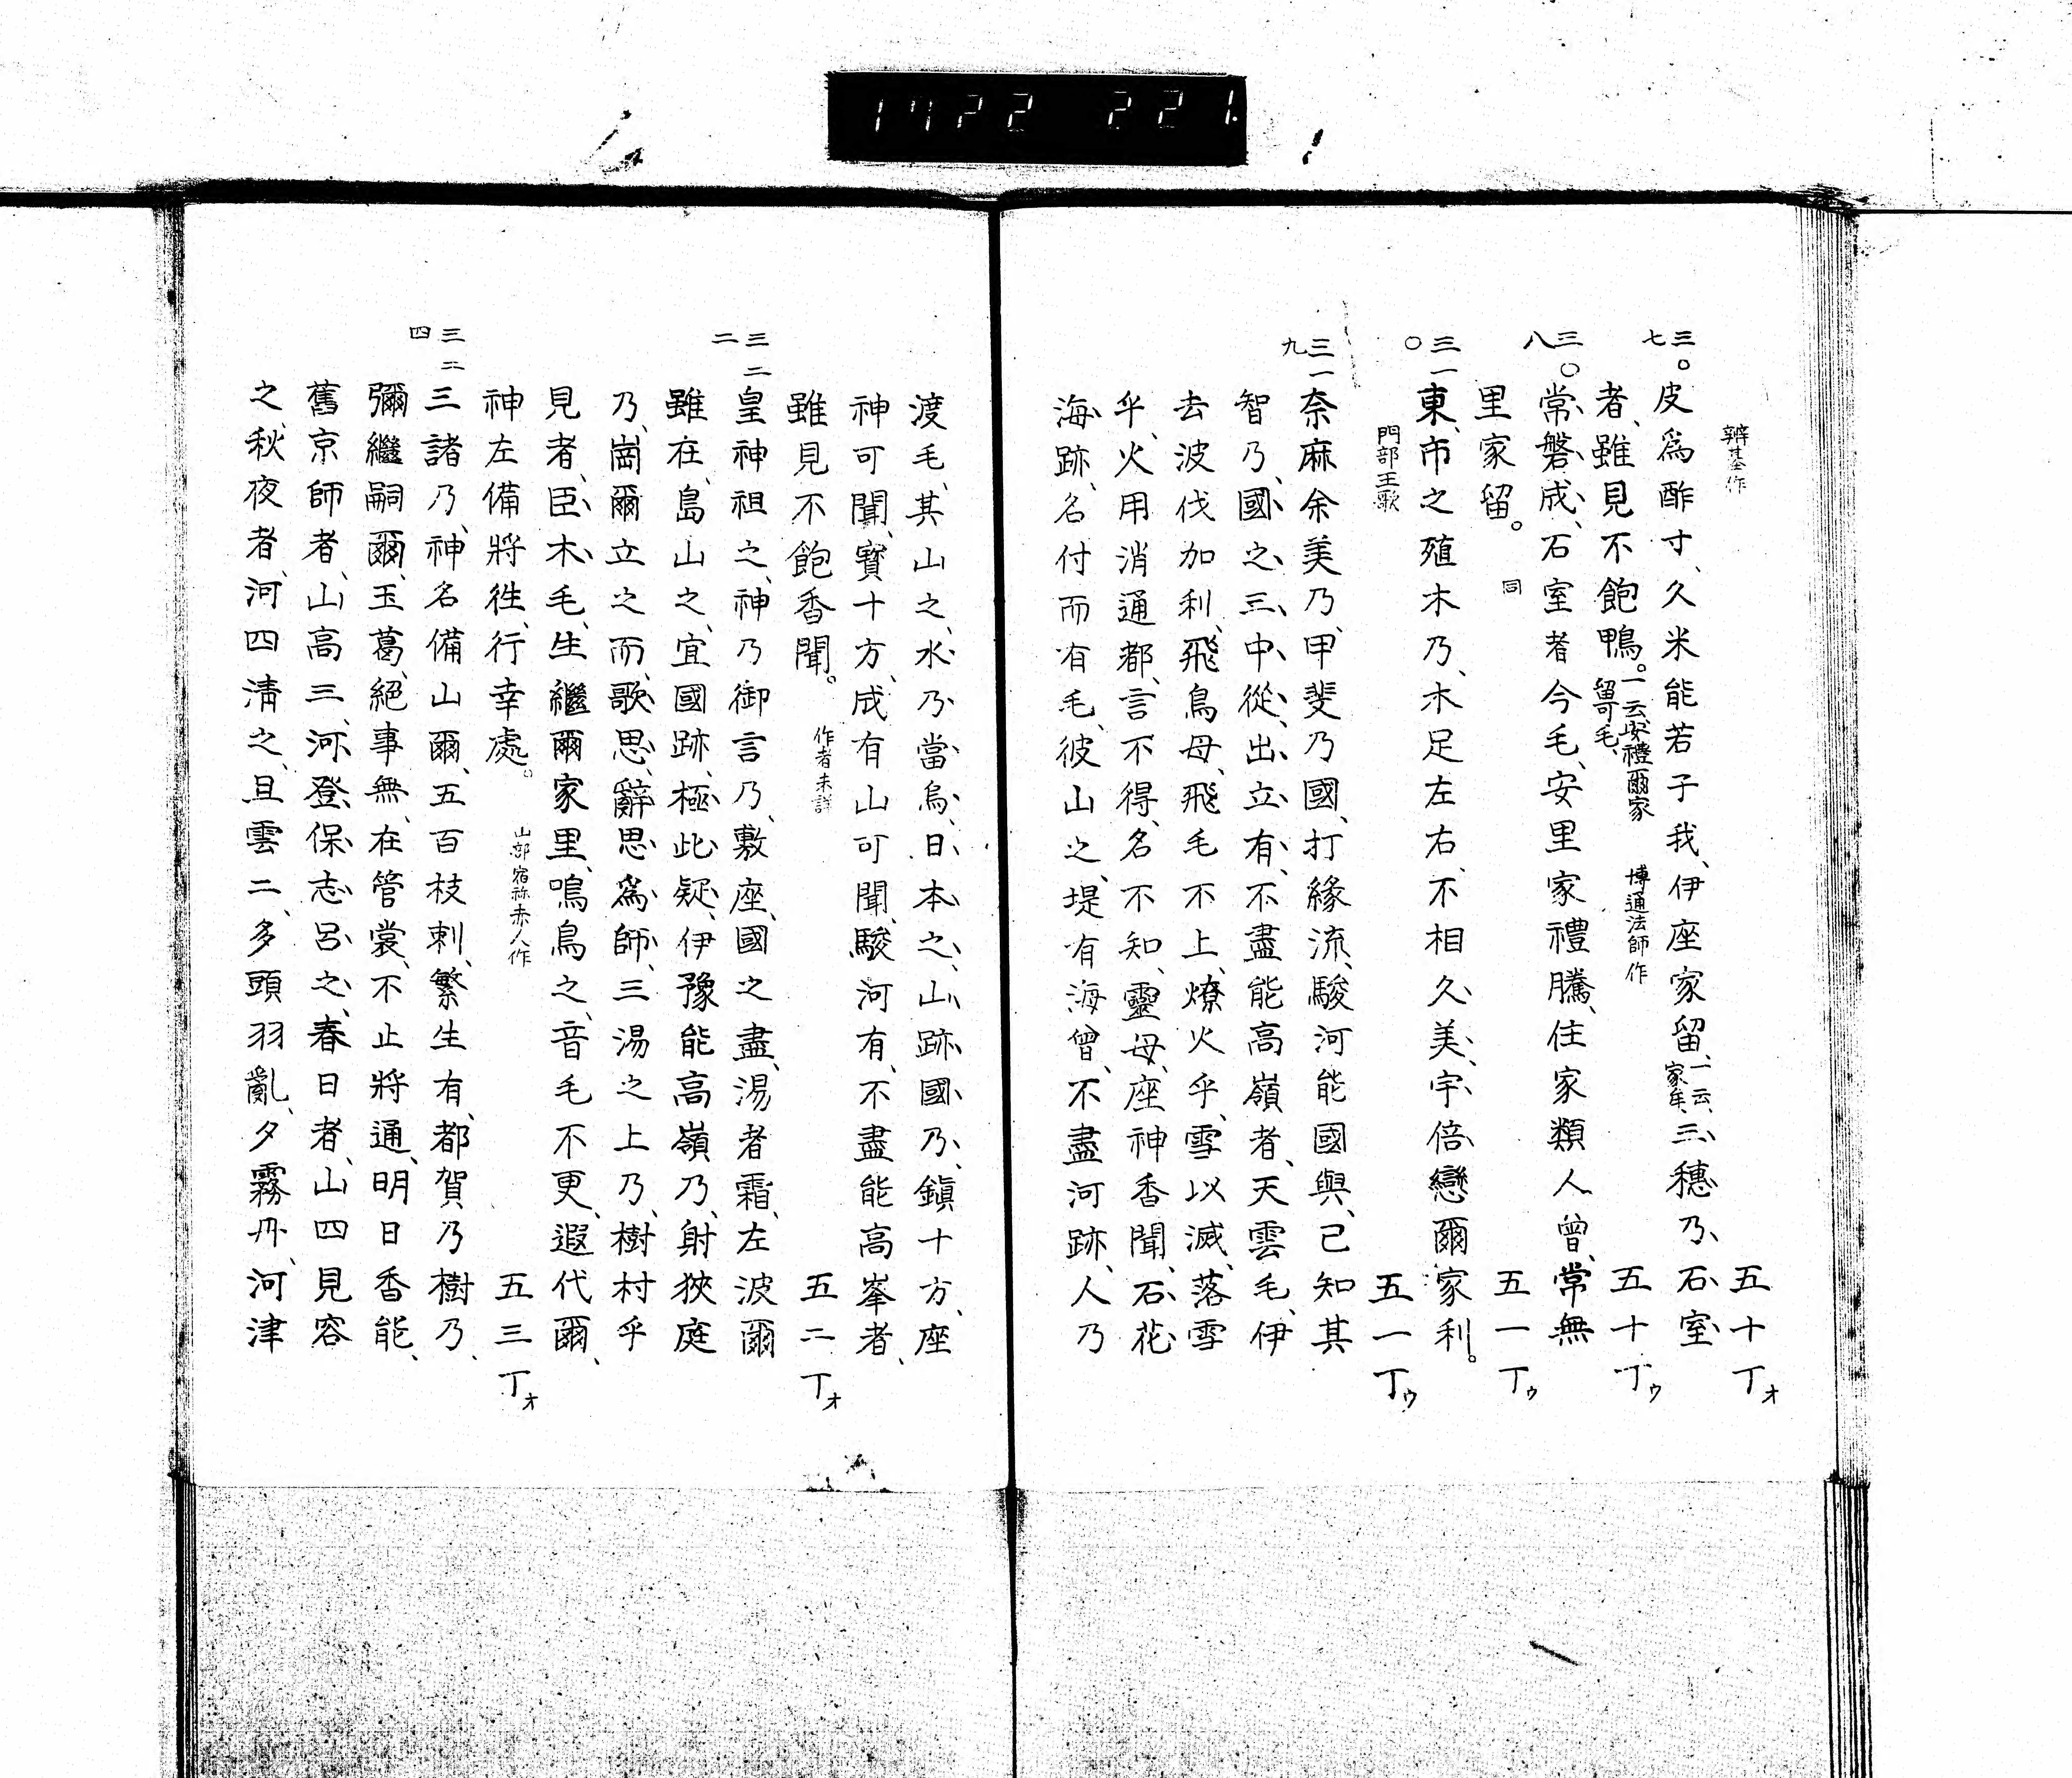 1722 221.
辨基作 五十丁オ
三〇七 皮爲酢寸、久米能若子我、伊座家留、一云、家牟、三、穗乃、石、室
者、雖見不飽鴨。一云、安禮爾家留哥毛、 博通法師作 五十丁ゥ
三〇八 常、磐、成、石室者今毛、安里家禮騰、住家類人曾、常無
里家留。 同 五一丁ゥ
三一〇 東、市之殖木乃、木足左右、不相久、美、宇、倍、戀爾家利。
門部王歌 五一丁ゥ
三一九 奈麻余美乃、甲斐乃國、打緣流、駿河能國與、己知其
智乃、國、之、三、中、從、出、立、有、不盡能高嶺者、天雲毛、伊
去波伐加利、飛鳥母、飛毛不上、燎火乎、雪以滅、落雪
乎、火用消通都、言不得、名不知、靈母、座神香聞、石、花
海、跡、名付而有毛、彼山之、堤有海曾、不盡河跡、人乃
渡毛、其山之、水、乃、當、烏、日、本、之、山、跡、國、乃、鎭十方、座
神可聞、寶十方、成有山可聞、駿河有、不盡能高峯者、
雖見不飽香聞。 作者未詳 五二丁オ
三二二 皇神祖之、神乃御言乃、敷座、國之盡、湯者霜、左波爾
雖在、島山之、宜國跡、極、此、疑、伊豫能高嶺乃、射狹庭
乃、崗爾立之而、歌、思、辭、思、爲、師、三湯之上乃、樹村乎
見者、臣、木、毛、生繼爾家里、鳴鳥之、音毛不更、遐代爾、
神左備將徃、行幸處。 山部宿祢赤人作 五三丁オ
三二四 三諸乃、神名備山爾、五百枝刺、繁生有、都賀乃樹乃、
彌繼嗣爾、玉葛、絕事無、在管裳、不止將通、明日香能、
舊京師者、山高三、河、登、保、志、呂、之、春日者、山四見容
之、秋夜者、河四淸之、且雲二、多頭羽亂、夕霧丹、河津